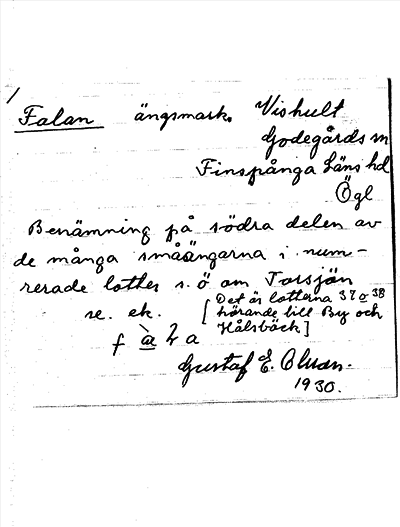 Falan ängsmark. Vishult
Godegårds sn
Finspånga Läns hd
Ögl
Benämning på södra delen av
de många småängarna i num-
rerade lotter s. ö om Torsjön
se. ek. [Det är lotterna 37 o 38
hörande till By och
Hålsbäck]
Gustaf E. Olsson.
1930.